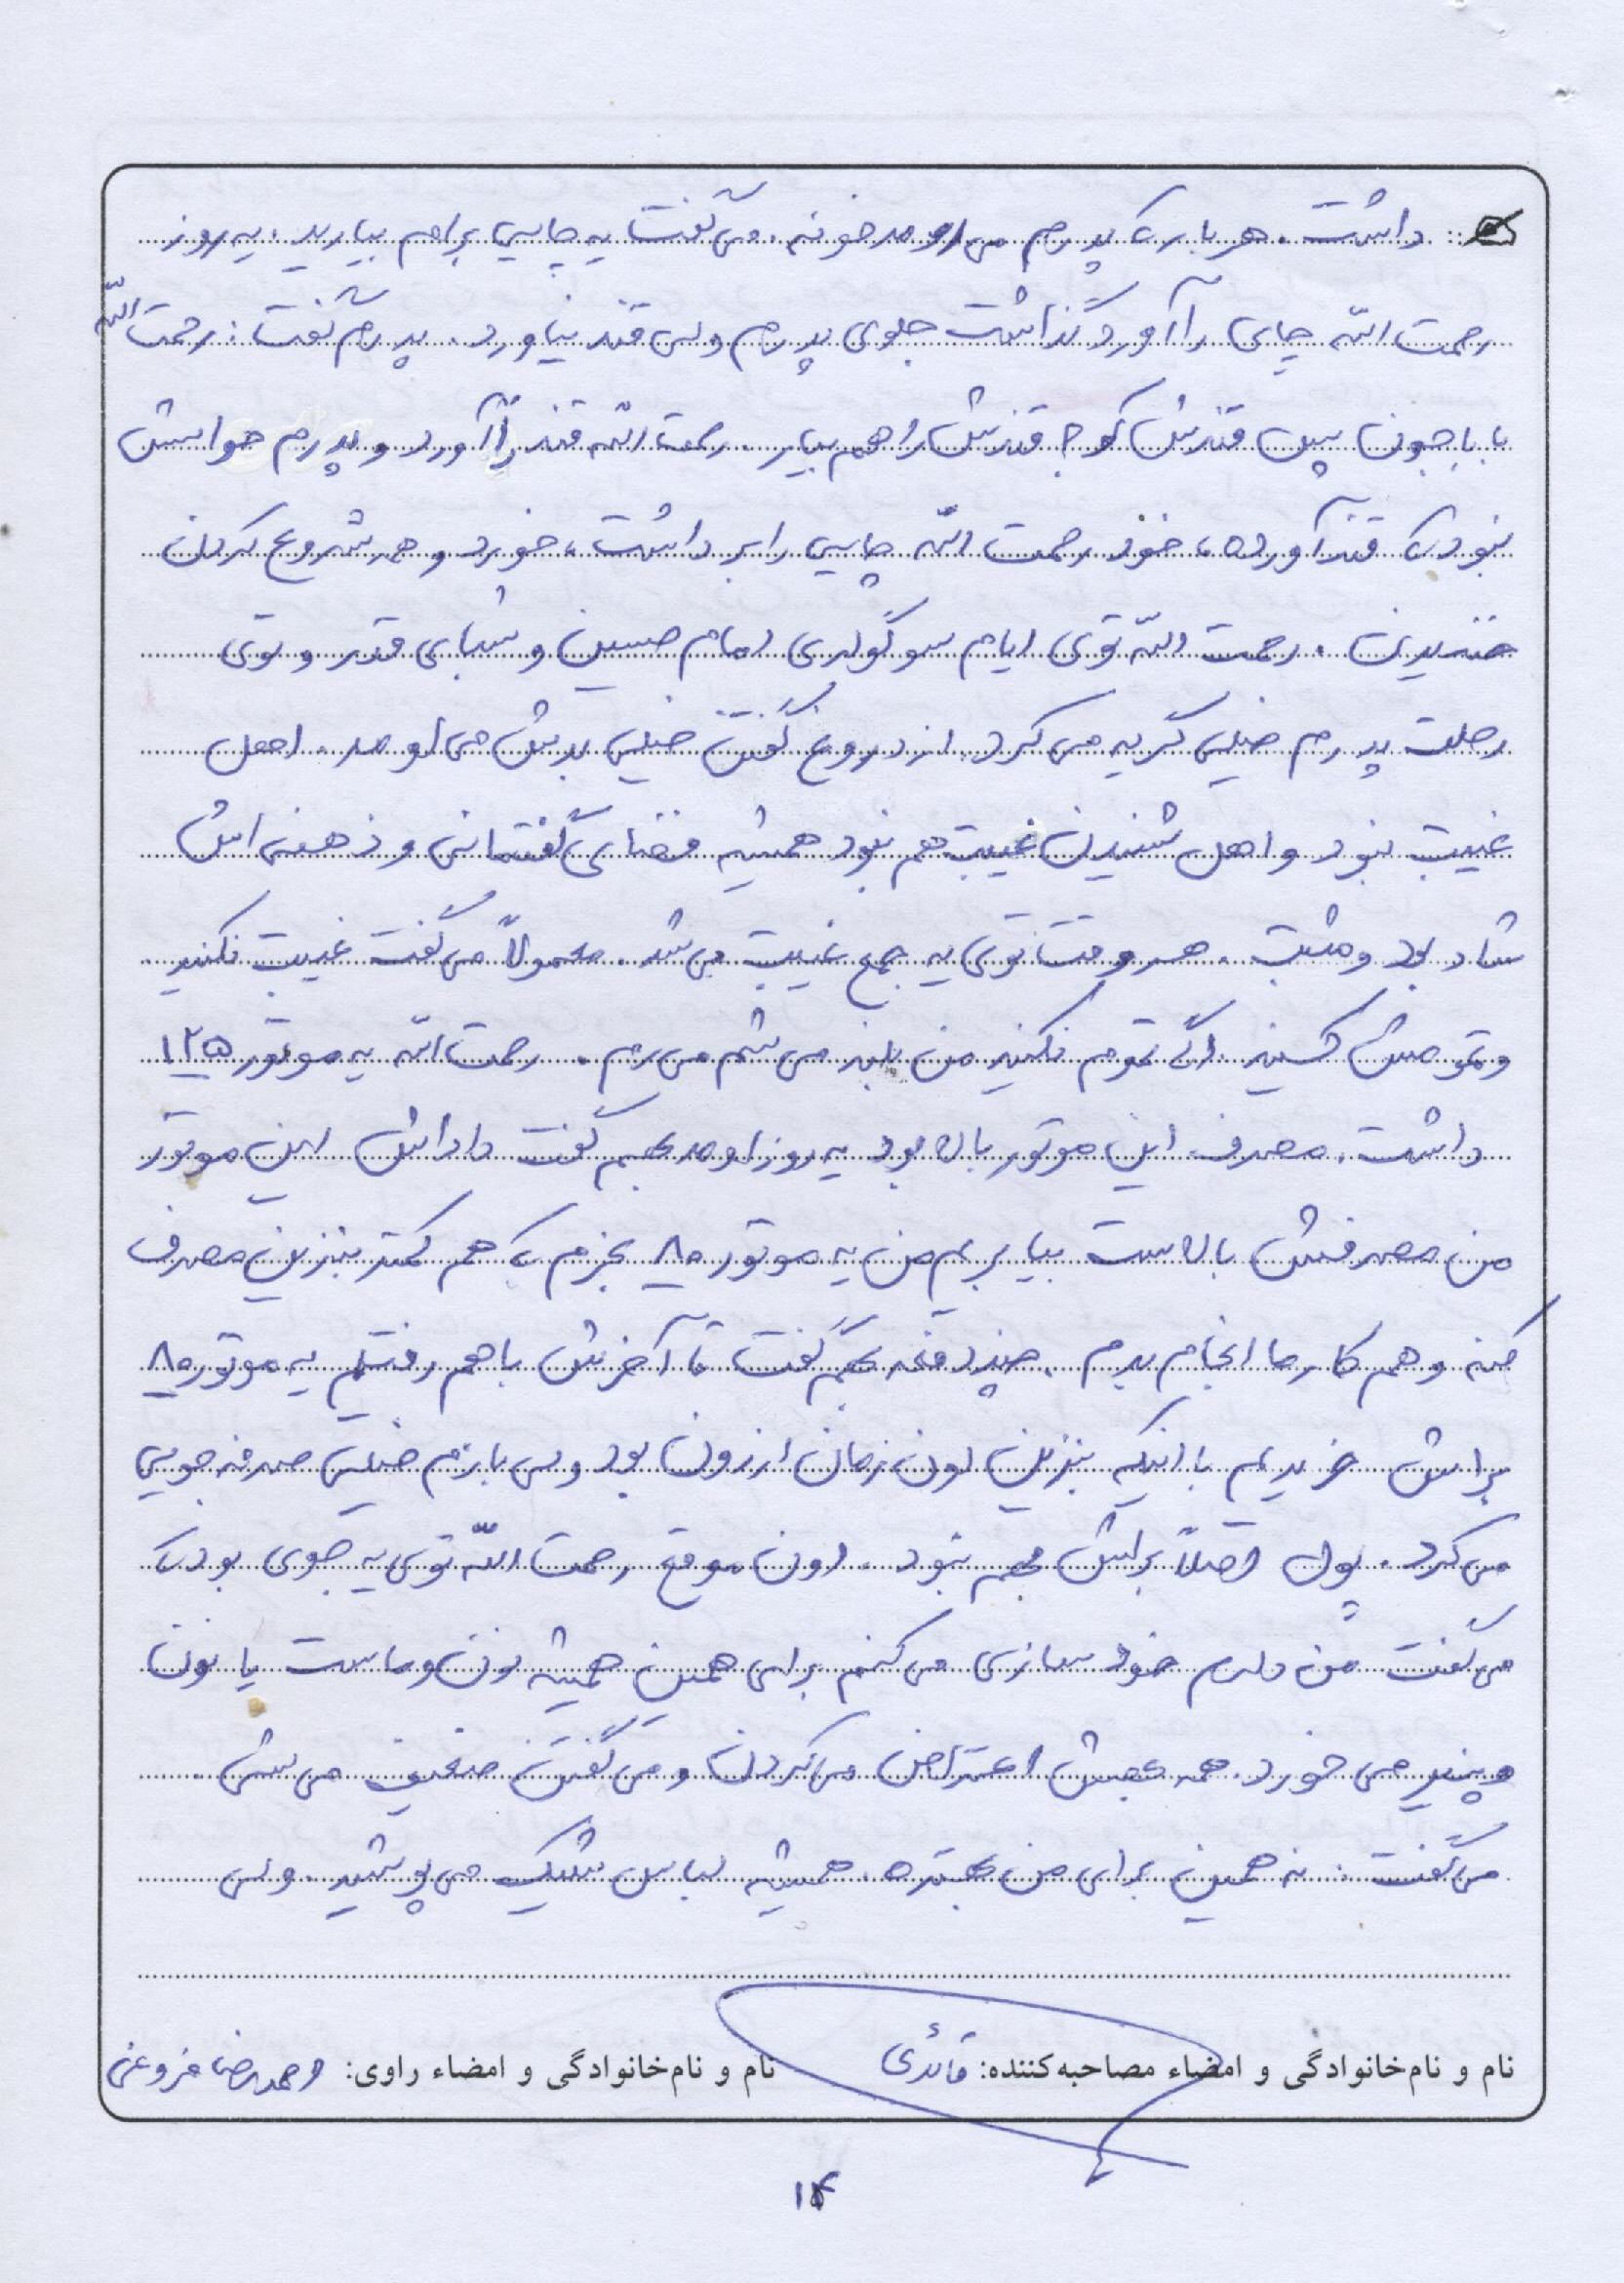 داشت. هر بار که پدرم می اومد خونه. می گفت یه چایی برام بیارید. یه روز
رحمت الله چایی را آورد گذاشت جلوی پدرم ولی قند نیاورد. پدرم گفت: رحمت الله
بابا جون پس قندش کو؟ قندش را هم بیار. رحمت الله قند را آورد و پدرم حواسش
نبود که قند آورده، خود رحمت الله چایی را برداشت، خورد و همه شروع کردن
خندیدن. رحمت الله توی ایام سوگواری امام حسین و شبای قدر و توی
رحلت پدرم خیلی گریه می کرد. از دروغ گفتن خیلی بدش می اومد. اهل
غیبت نبود و اهل شنیدن غیبت هم نبود همیشه فضای گفتمانی و ذهنی اش
شاد بود و مثبت. هر وقت توی یه جمع غیبت می شد. معمولاً می گفت غیبت نکنید.
و تمومش کنید. اگه تموم نکنید من بلند می شم می رم. رحمت الله یه موتور ۱۲۵
داشت. مصرف این موتور بالا بود یه روز اومد بهم گفت داداش این موتور
من مصرفش بالاست بیا بریم من یه موتور ۸۰ بخرم که هم کمتر بنزین مصرف
کنه و هم کارها انجام بدم. چند دفعه بهم گفت تا آخرش با هم رفتیم یه موتور ۸۰
براش خریدیم با اینکه بنزین اون زمان ارزون بود ولی بازم خیلی صرفه جویی
می کرد. پول اصلاً براش مهم نبود. اون موقع رحمت الله توی یه جوی بود که
می گفت من دارم خود سازی می کنم برای همین همیشه نون و ماست یا نون
و پنیر می خورد. همه بهش اعتراض می کردن و می گفتن ضعیف می شی.
می گفت: نه همین برای من بهتره. همیشه لباس شیک می پوشید. ولی
نام و نام‌خانوادگی و امضاء مصاحبه‌کننده: قائدی نام و نام‌خانوادگی و امضاء راوی: احمدرضا فروغی
۱۴